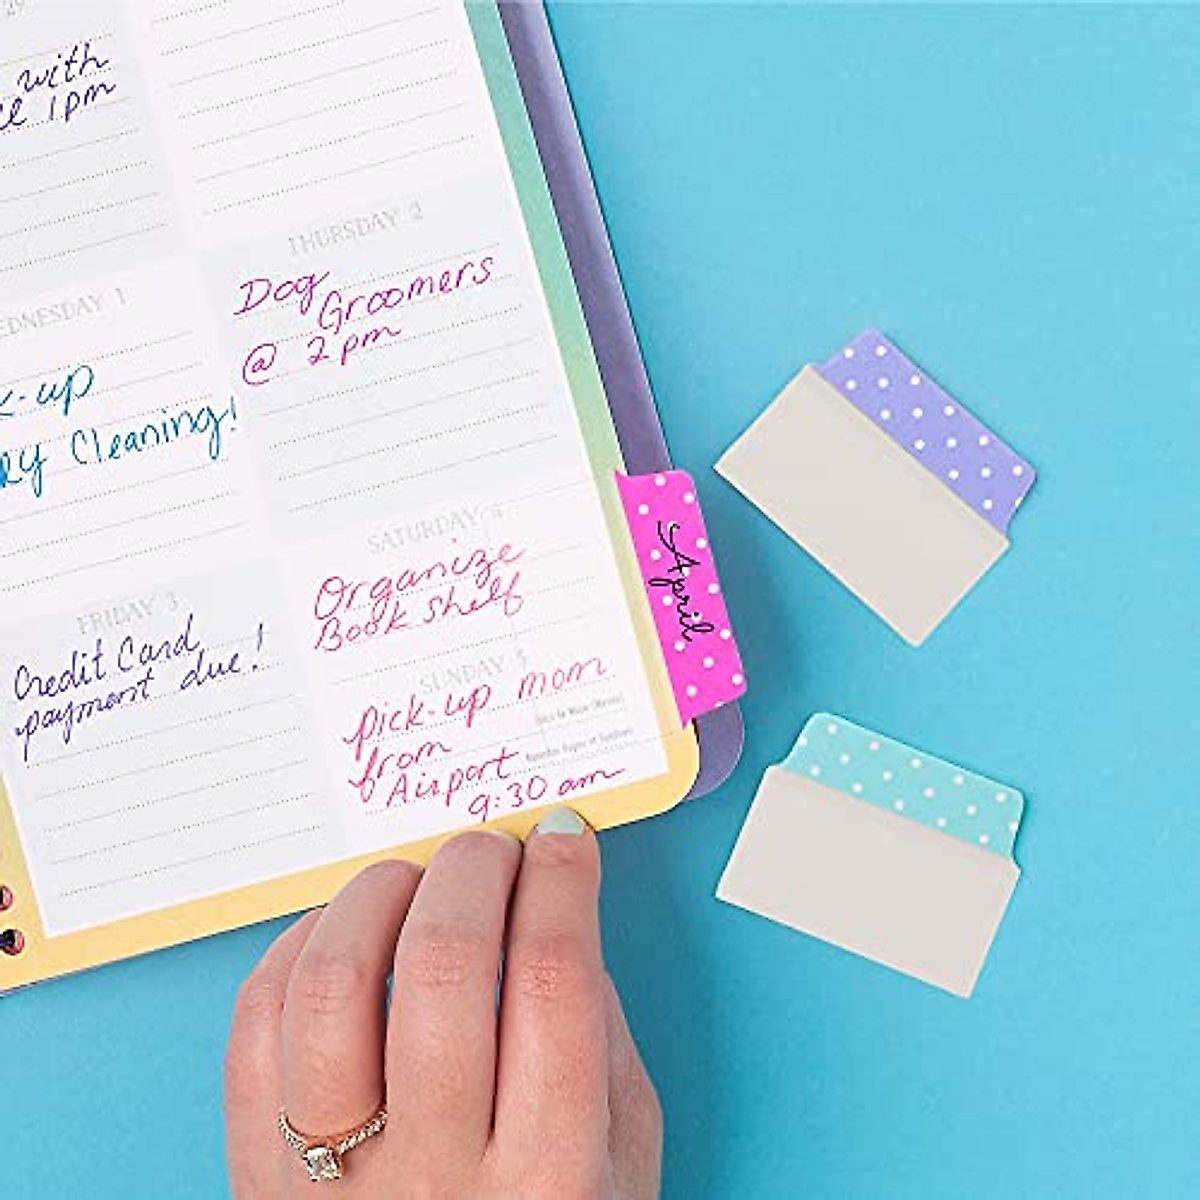 29
with
1pm
THURSDAY 2
Dog
Groomers
@ 2pm
EDNESDAY 1
k-up
ry Cleaning!
SATURDAY 4
Organize
Book Shelf
April
FRIDAY 3
Credit Card
payment due!
SUNDAY 5
pick-up mom
from
Airport
9:30 am